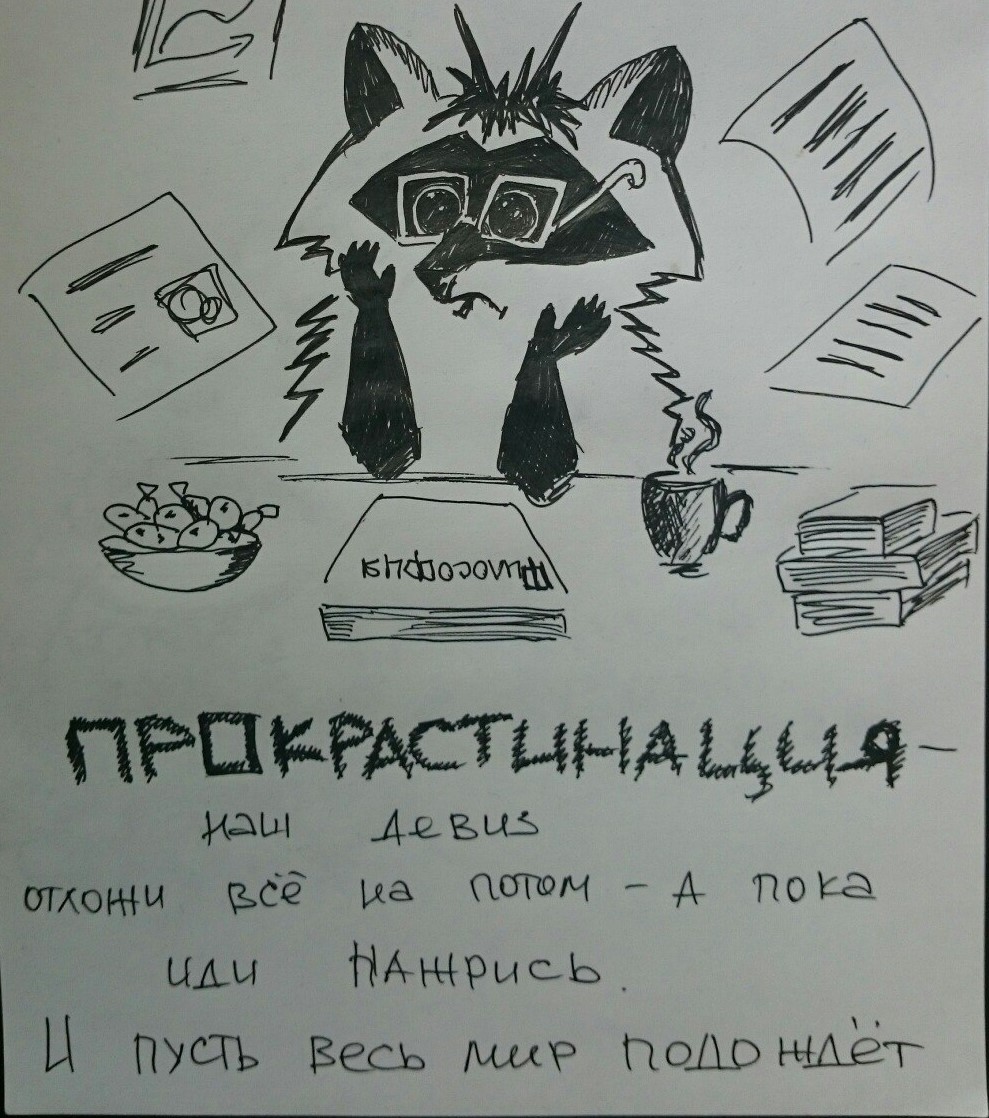 Философия
ПРОКРАСТИНАЦИЯ –
наш девиз
отложи всё на потом – А пока
иди НАЖРИСЬ.
И пусть весь мир подождёт